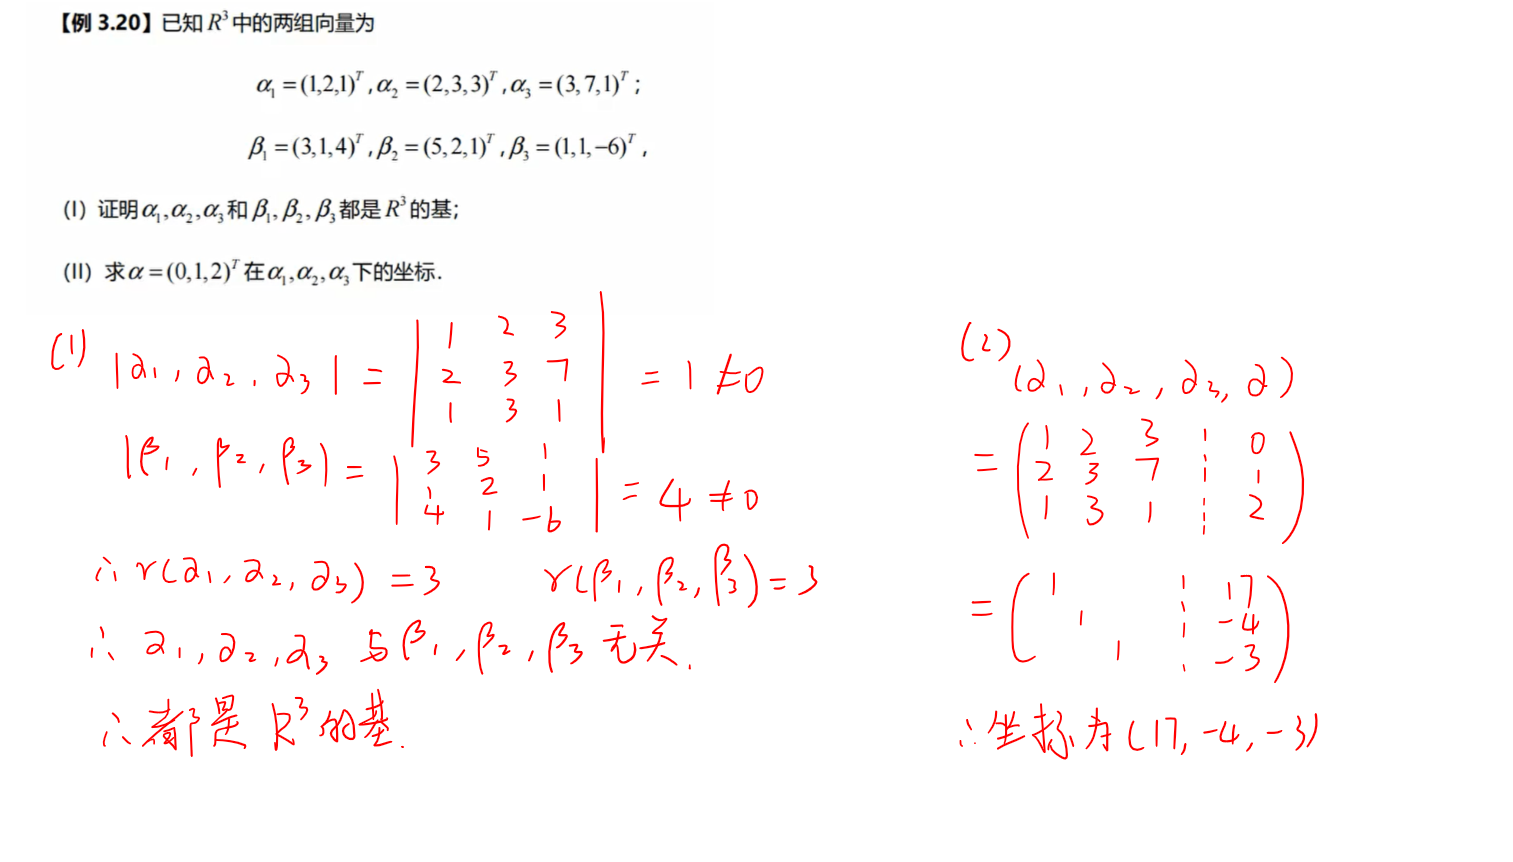 【例 3.20】已知 R³ 中的两组向量为
α₁ = (1,2,1)ᵀ, α₂ = (2,3,3)ᵀ, α₃ = (3,7,1)ᵀ;
β₁ = (3,1,4)ᵀ, β₂ = (5,2,1)ᵀ, β₃ = (1,1,−6)ᵀ,
(I) 证明 α₁, α₂, α₃ 和 β₁, β₂, β₃ 都是 R³ 的基;
(II) 求 α = (0,1,2)ᵀ 在 α₁, α₂, α₃ 下的坐标.
(1) |α₁, α₂, α₃| = | 1 2 3
2 3 7
1 3 1 | = 1 ≠ 0
|β₁, β₂, β₃| = | 3 5 1
1 2 1
4 1 −6 | = 4 ≠ 0
∴ r(α₁, α₂, α₃) = 3 r(β₁, β₂, β₃) = 3
∴ α₁, α₂, α₃ 与 β₁, β₂, β₃ 无关.
∴ 都是 R³ 的基.
(2)
(α₁, α₂, α₃, α)
= ( 1 2 3 ¦ 0
2 3 7 ¦ 1
1 3 1 ¦ 2 )
= ( 1 ¦ 17
1 ¦ −4
1 ¦ −3 )
∴ 坐标为 (17, −4, −3)